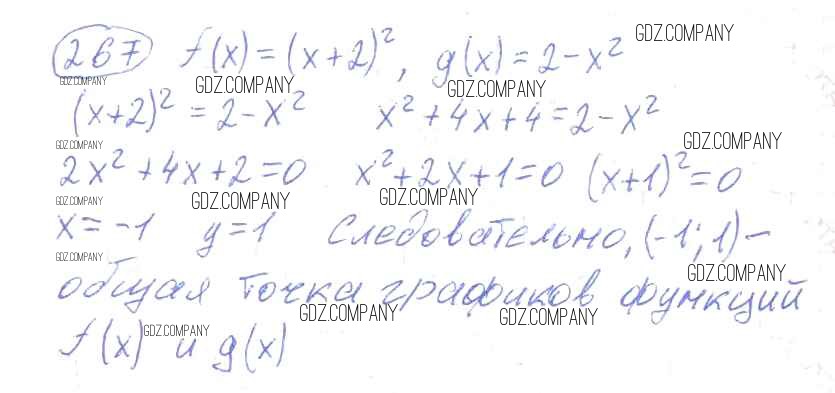 267 f(x) = (x+2)², g(x) = 2-x² GDZ.COMPANY
GDZ.COMPANY GDZ.COMPANY GDZ.COMPANY
(x+2)² = 2-x² x²+4x+4=2-x²
GDZ.COMPANY GDZ.COMPANY
2x²+4x+2=0 x²+2x+1=0 (x+1)²=0
GDZ.COMPANY GDZ.COMPANY GDZ.COMPANY
x=-1 y=1 Следовательно, (-1; 1) –
GDZ.COMPANY GDZ.COMPANY
общая точка графиков функций
GDZ.COMPANY GDZ.COMPANY
f(x) GDZ.COMPANY и g(x)